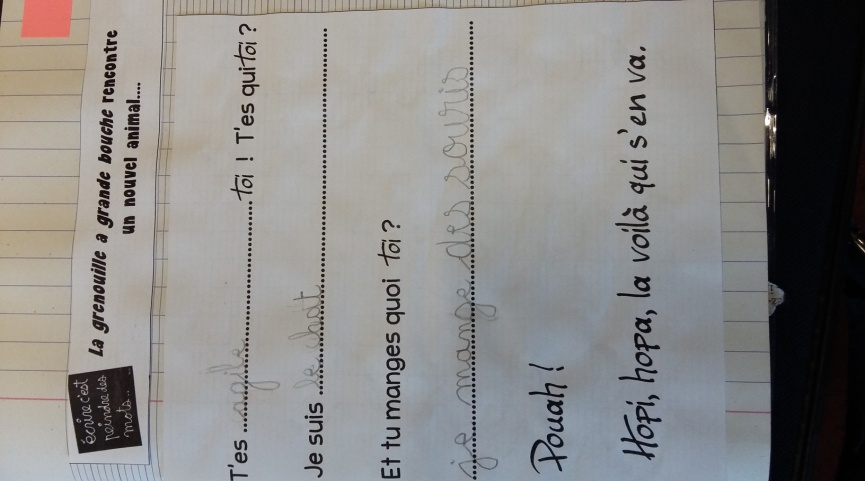 écrire c'est
peindre des
mots...
La grenouille a grande bouche rencontre
un nouvel animal....
T'es ...agile...toi ! T'es qui toi ?
Je suis ...le chat...
Et tu manges quoi toi ?
je mange des souris
Pouah !
Hopi, hopa, la voilà qui s'en va.